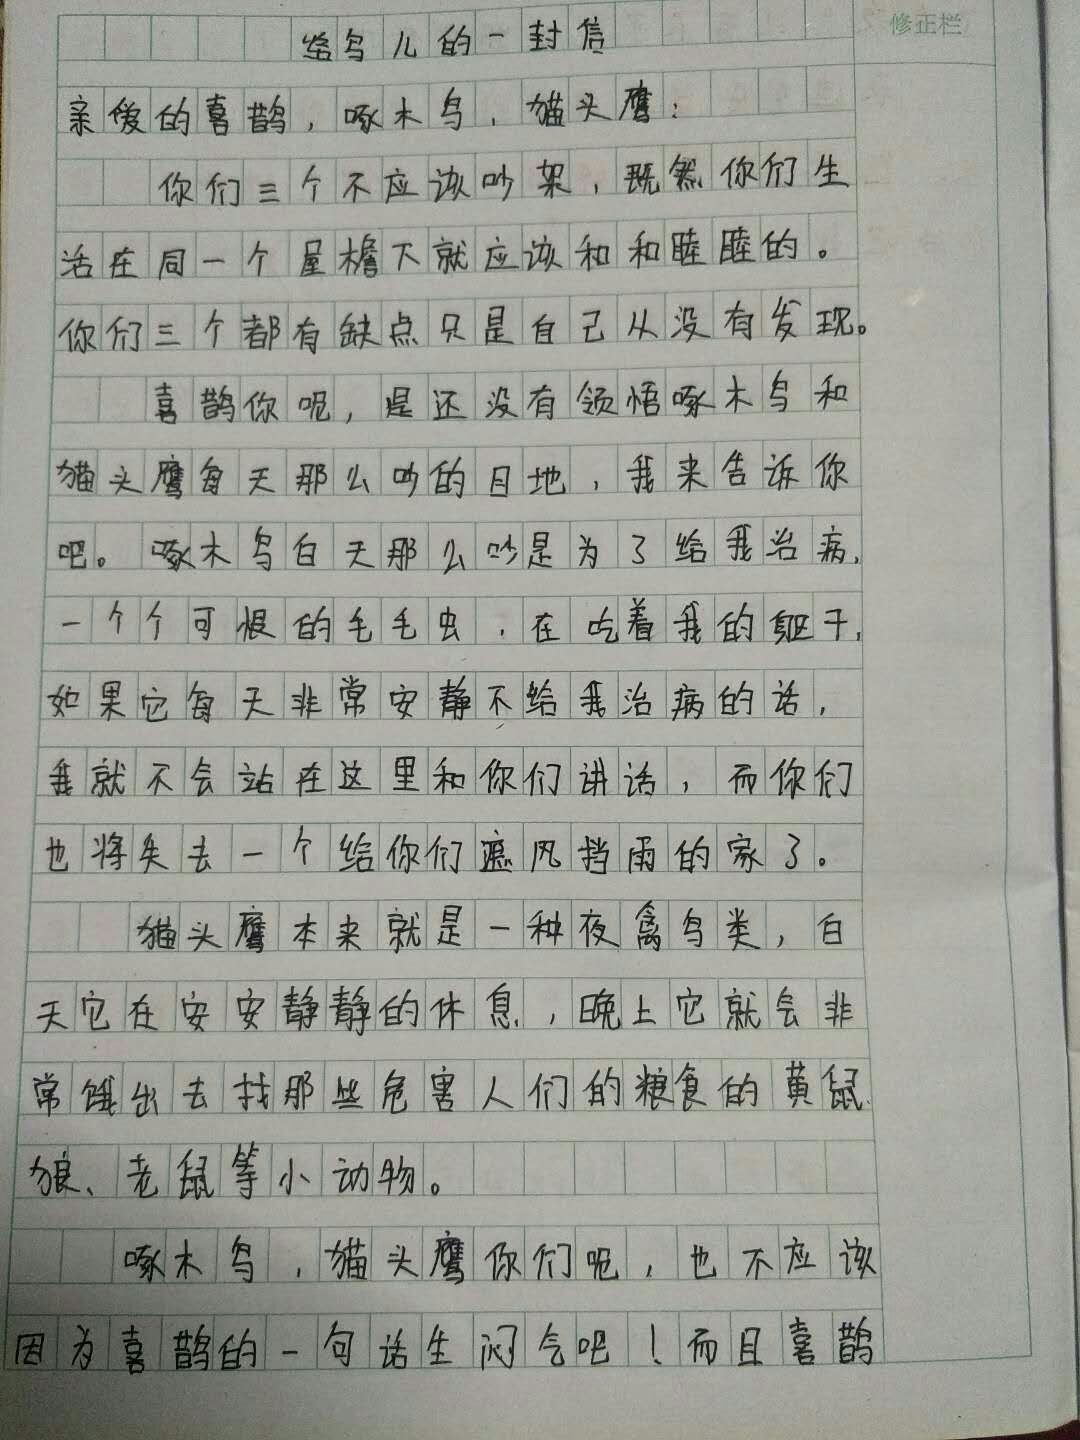 修正栏
给鸟儿的一封信
亲爱的喜鹊，啄木鸟，猫头鹰：
你们三个不应该吵架，既然你们生
活在同一个屋檐下就应该和和睦睦的。
你们三个都有缺点只是自己从没有发现。
喜鹊你呢，是还没有领悟啄木鸟和
猫头鹰每天那么吵的目地，我来告诉你
吧。啄木鸟白天那么吵是为了给我治病，
一个个可恨的毛毛虫，在吃着我的躯干，
如果它每天非常安静不给我治病的话，
我就不会站在这里和你们讲话，而你们
也将失去一个给你们遮风挡雨的家了。
猫头鹰本来就是一种夜禽鸟类，白
天它在安安静静的休息，晚上它就会非
常饿出去找那些危害人们的粮食的黄鼠
狼、老鼠等小动物。
啄木鸟，猫头鹰你们呢，也不应该
因为喜鹊的一句话生闷气吧！而且喜鹊